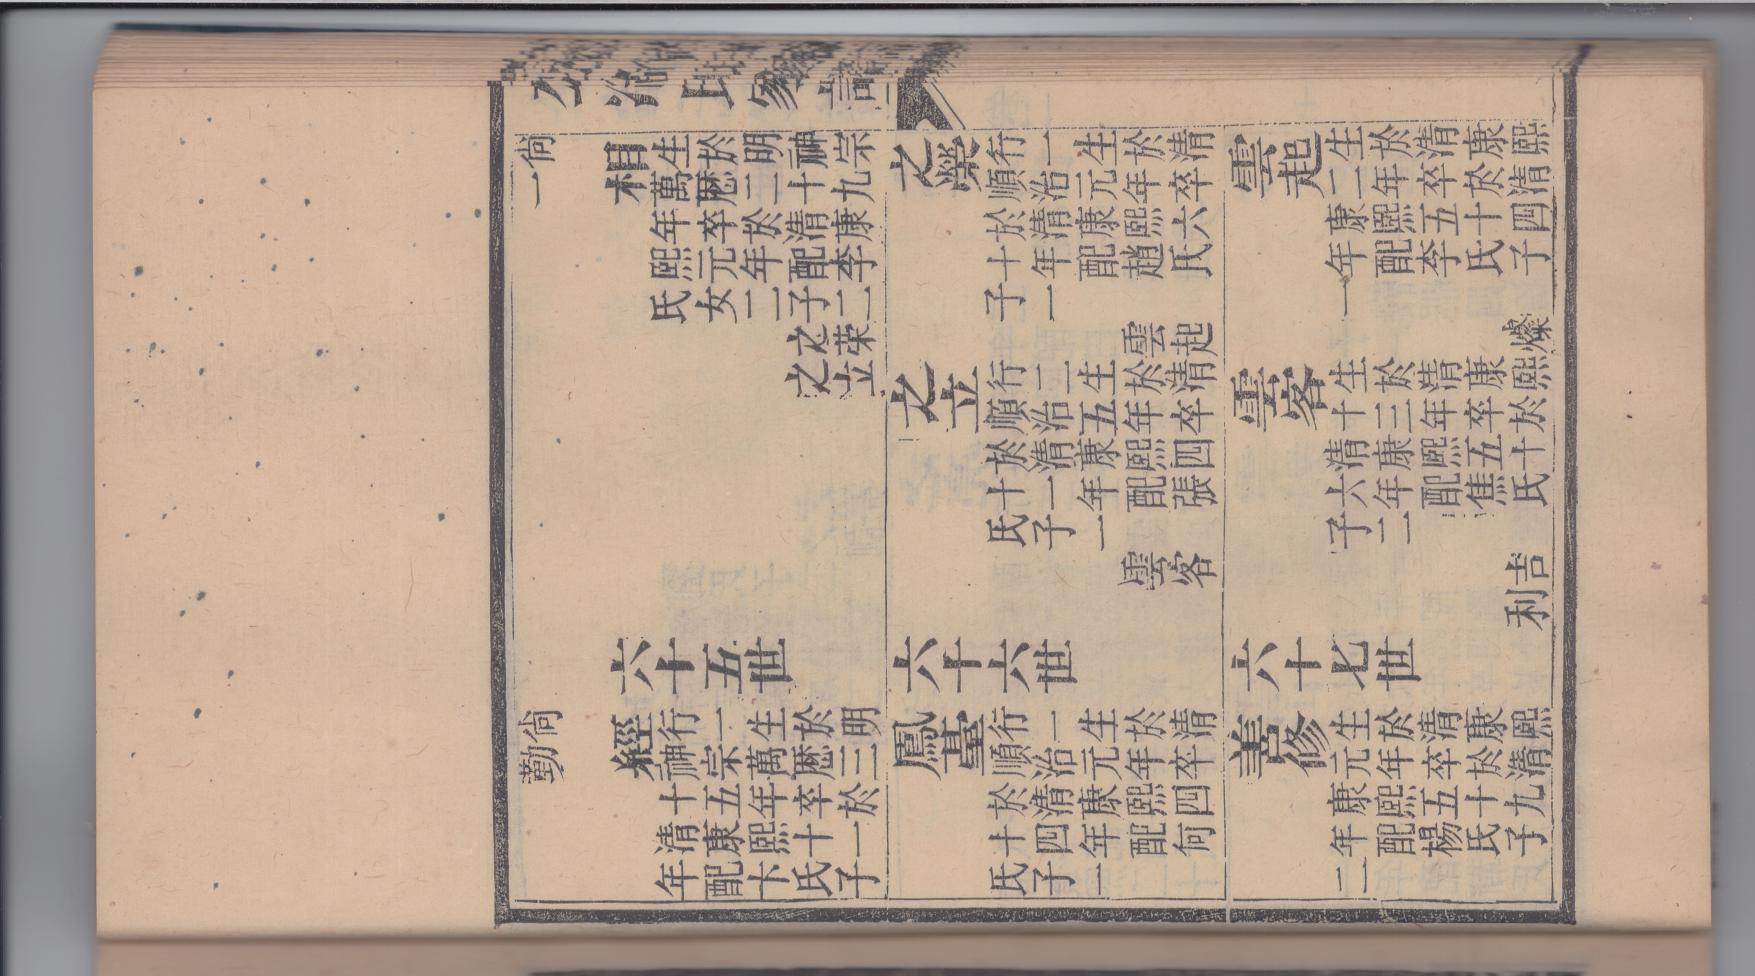 公冶氏家譜
尚一
相
生於明神宗
萬曆二十九
年卒於清康
熙元年配李
氏女一子二
之荣
之立
之榮
行一生於清
順治元年卒
於清康熙六
十年配趙氏
子一
雲起
之立
行二生於清
順治五年卒
於清康熙四
十一年配張
氏子一
雲客
雲起
生於清康熙
二年卒於清
康熙五十四
年配李氏子
一
燦
雲客
生於清康熙
十三年卒於
清康熙五十
六年配焦氏
子二
吉
利
六十五世
六十六世
六十七世
尚勤
經
行一生於明
神宗萬曆三
十五年卒於
清康熙十一
年配卞氏子
鳳臺
行一生於清
順治元年卒
於清康熙四
十四年配何
氏子二
善修
生於清康熙
元年卒於清
康熙五十九
年配楊氏子
二